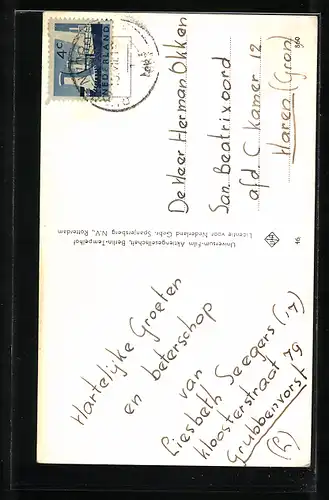 Hartelijke Groeten
en beterschap
van
Liesbeth Seegers (17)
Kloosterstraat 79
Grubbenvorst
(L)
Universum-Film Aktiengesellschaft, Berlin-Tempelhof
Licentie voor Nederland Gebr. Spanjersberg N.V., Rotterdam
46
4c
NEDERLAND
De Heer Herman Okken
San. Beatrixoord
afd. C Kamer 12
Haren (Gron)
860